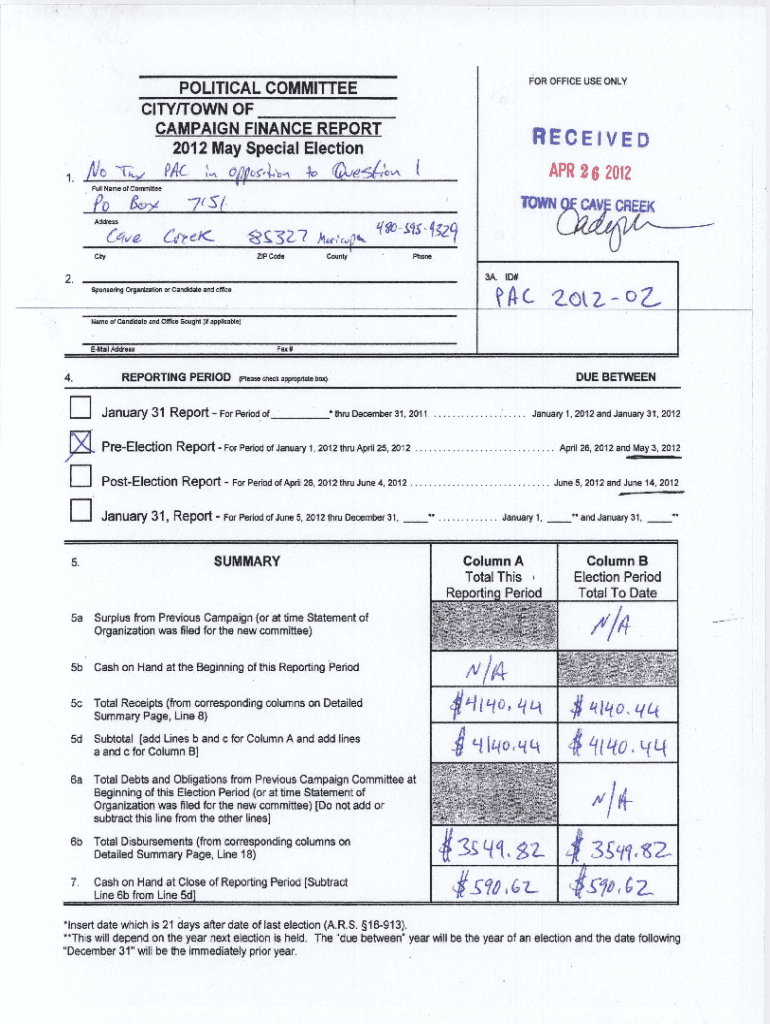 POLITICAL COMMITTEE
CITY/TOWN OF
CAMPAIGN FINANCE REPORT
2012 May Special Election
FOR OFFICE USE ONLY
RECEIVED
APR 26 2012
TOWN OF CAVE CREEK
1. No Tax PAC in opposition to Question 1
Full Name of Committee
Po Box 7151
Address
Cave Creek 85327 Maricopa 480-595-9329
City ZIP Code County Phone
2.
Sponsoring Organization or Candidate and office
3A. ID#
PAC 2012-02
Name of Candidate and Office Sought [if applicable]
E-Mail Address Fax #
4. REPORTING PERIOD (Please check appropriate box) DUE BETWEEN
January 31 Report - For Period of __________* thru December 31, 2011 .................... January 1, 2012 and January 31, 2012
X Pre-Election Report - For Period of January 1, 2012 thru April 25, 2012 ............................ April 26, 2012 and May 3, 2012
Post-Election Report - For Period of April 26, 2012 thru June 4, 2012 ............................ June 5, 2012 and June 14, 2012
January 31, Report - For Period of June 5, 2012 thru December 31, _____** ............. January 1, _____** and January 31, _____**
5. SUMMARY
Column A
Total This
Reporting Period
Column B
Election Period
Total To Date
5a Surplus from Previous Campaign (or at time Statement of
Organization was filed for the new committee)
N/A
5b Cash on Hand at the Beginning of this Reporting Period
N/A
5c Total Receipts (from corresponding columns on Detailed
Summary Page, Line 8)
$4140.44 $4140.44
5d Subtotal [add Lines b and c for Column A and add lines
a and c for Column B]
$4140.44 $4140.44
6a Total Debts and Obligations from Previous Campaign Committee at
Beginning of this Election Period (or at time Statement of
Organization was filed for the new committee) [Do not add or
subtract this line from the other lines]
N/A
6b Total Disbursements (from corresponding columns on
Detailed Summary Page, Line 18)
$3549.82 $3549.82
7. Cash on Hand at Close of Reporting Period [Subtract
Line 6b from Line 5d]
$590.62 $590.62
*Insert date which is 21 days after date of last election (A.R.S. §16-913).
**This will depend on the year next election is held. The "due between" year will be the year of an election and the date following
"December 31" will be the immediately prior year.